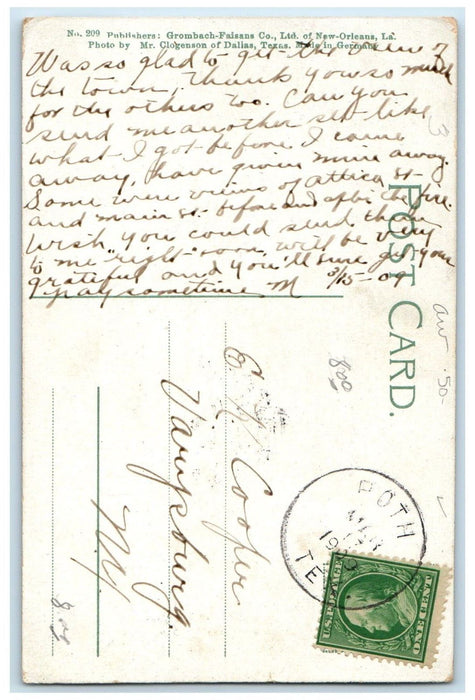 No. 209 Publishers: Grombach-Faisans Co., Ltd. of New-Orleans, La.
Photo by Mr. Clogenson of Dallas, Texas. Made in Germany
Was so glad to get the view of
the town, thank you so much
for the others too. Can you
send me another set like
what I got before I came
away, have given mine away.
Some were views of Attica st
and main st. before and after the fire.
Wish you could send them
to me "right" soon, will be very
grateful and you'll sure get your
pay sometime M 3/15-09
POST CARD.
E. Cooper
N.Y.
ROTH
MAR
TE
8.00
aw .50-
3
8.00